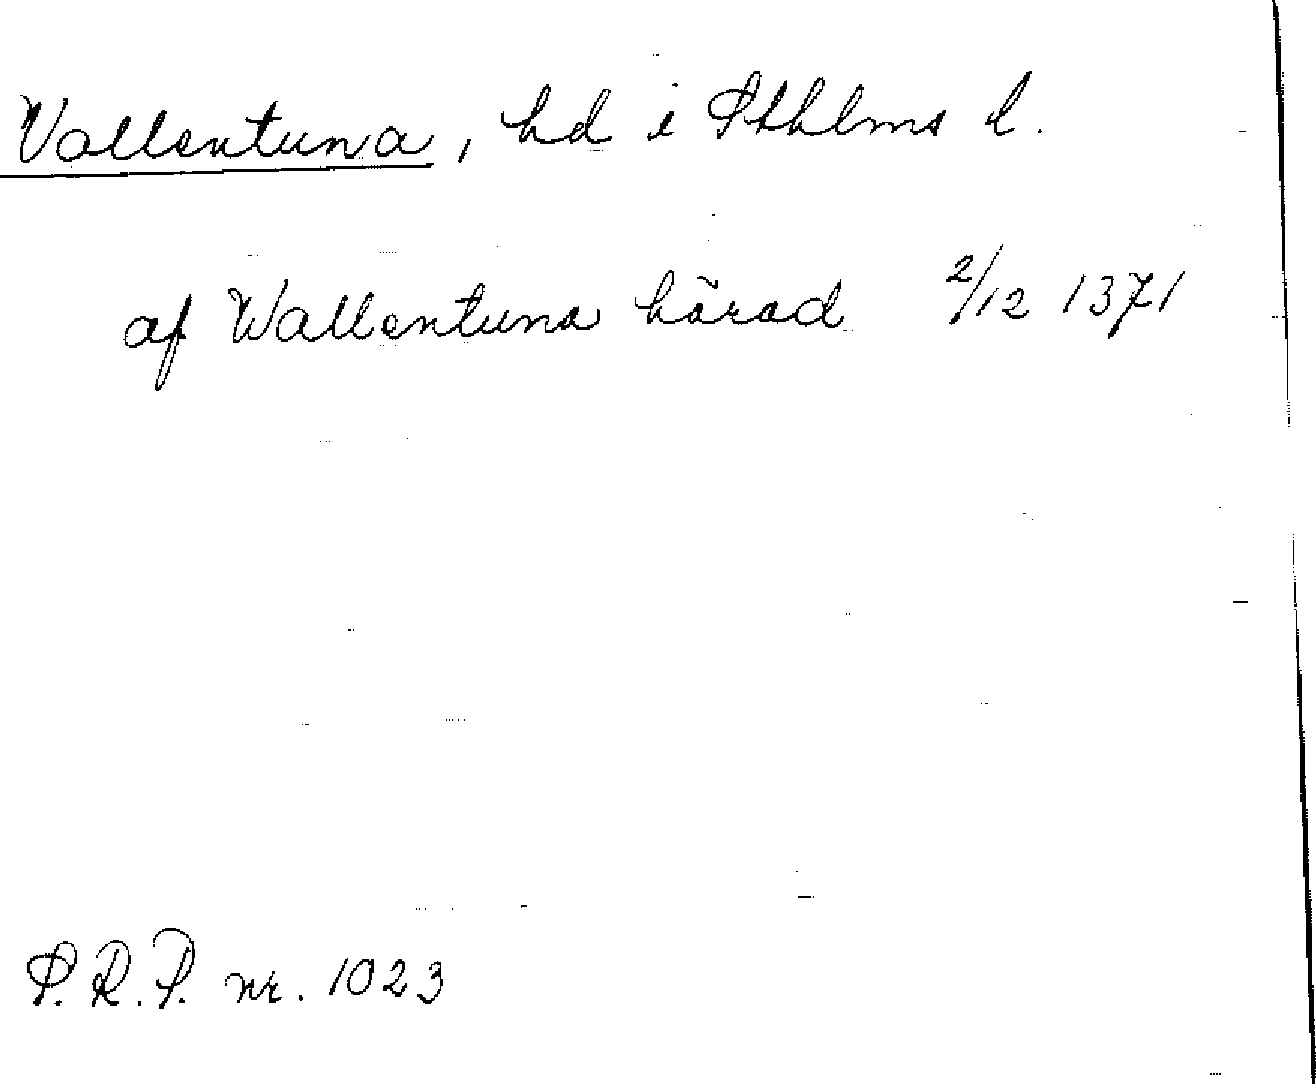 Vallentuna, hd i Sthlms l.
af Wallentuna härad 2/12 1371
S.R.P. nr. 1023